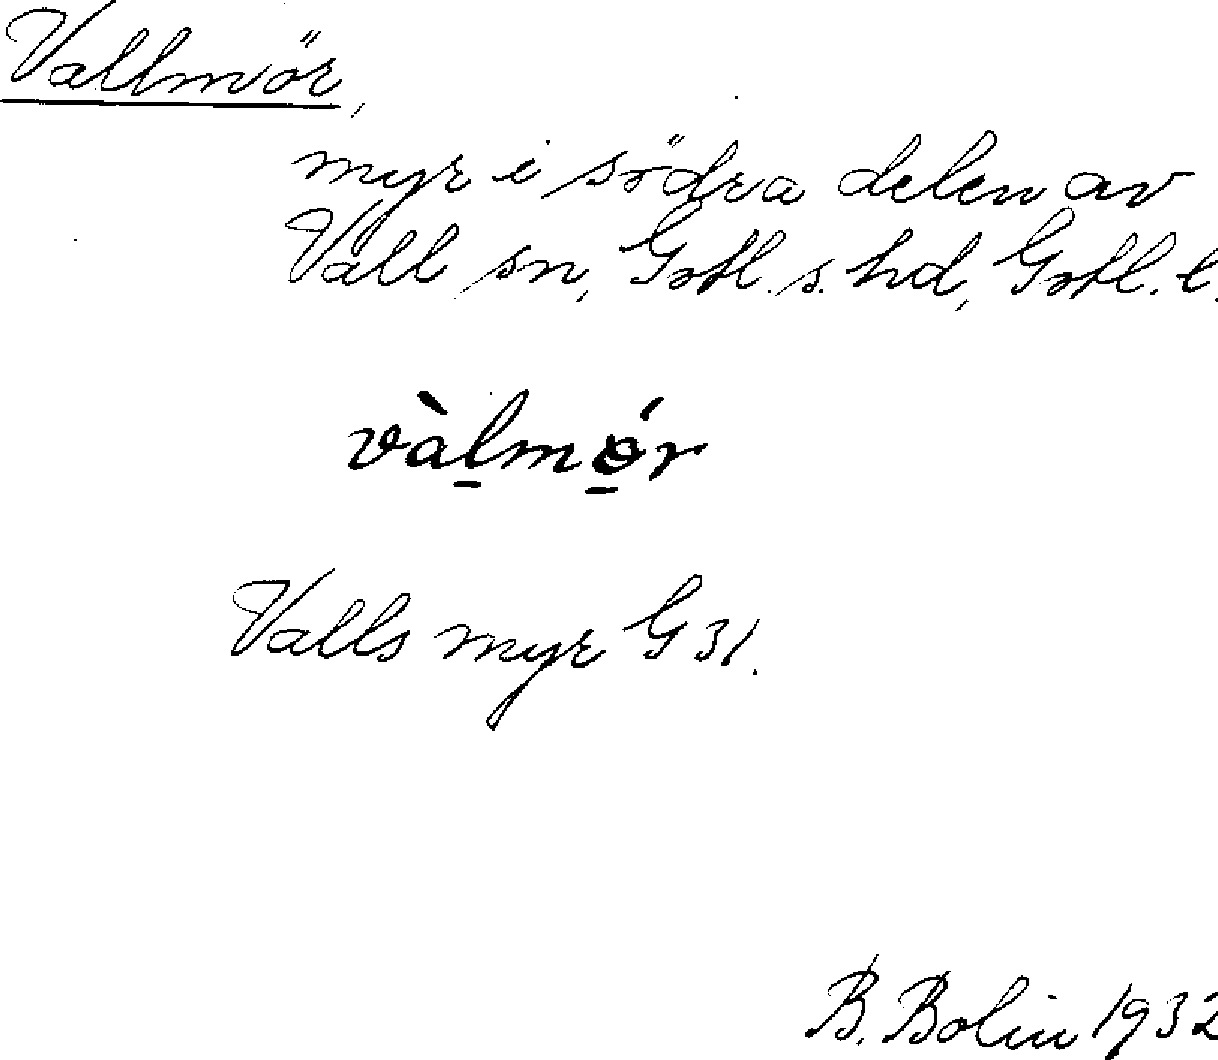 Vallmör,
myr i södra delen av
Vall sn, Gotl. s. hd, Gotl. l.
vàl̠mǿ̠r
Valls myr G 31.
B. Bolin 1932